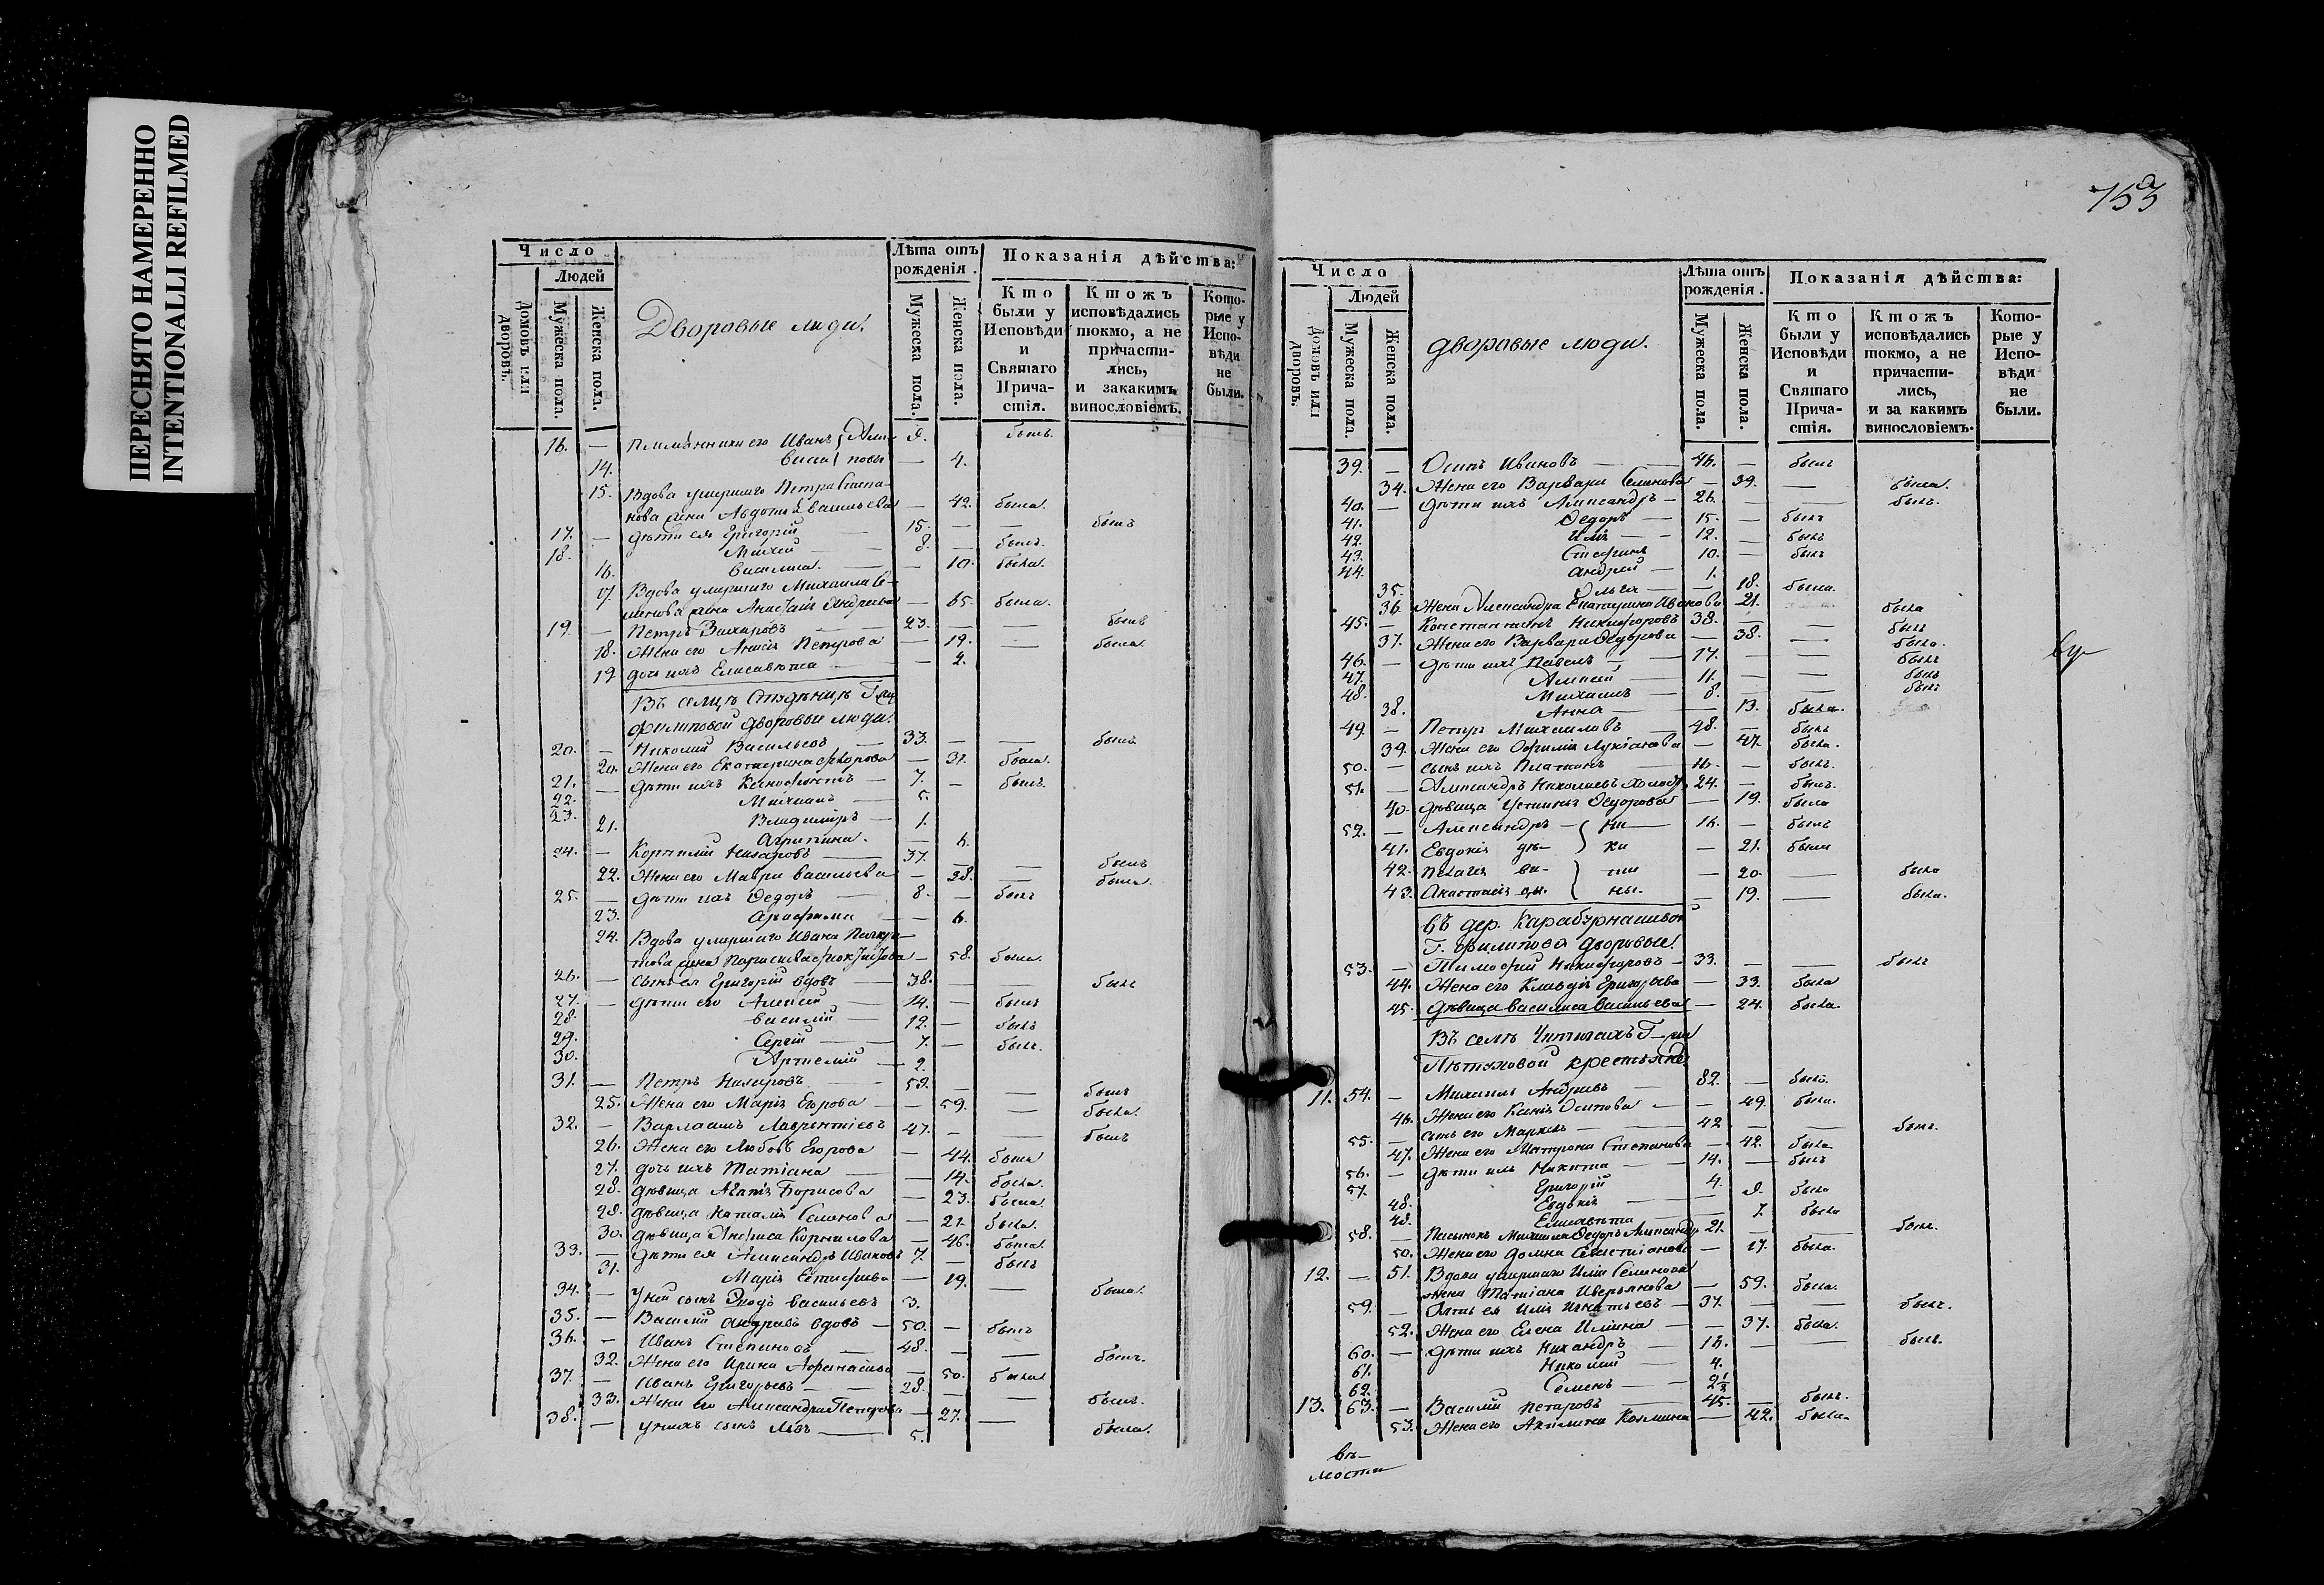 ПЕРЕСНЯТО НАМЕРЕННО
INTENTIONALLI REFILMED
753
Число
Людей
Домовъ или дворовъ.
Мужеска пола.
Женска пола.
Дворовые люди.
Лѣта отъ рожденія.
Мужеска пола.
Женска пола.
Показанія дѣйства:
Кто были у Исповѣди и Святаго Причастія.
Ктожъ исповѣдались токмо, а не причастились, и закакимъ винословіемъ.
Которые у Исповѣди не были.
16. — Племянники его Иванъ
14. 4.
15. Вдова умершаго Петра Степа-
нова жена Авдотья Васильева — 42. была.
17. — дѣти ея Григорій 15. — — былъ
18. Михей 8. — былъ.
16. Василиса — — 10. была.
17. Вдова умершаго Михаила Се-
менова жена — 65. была.
19. — Петръ Захаровъ 23. — — былъ
18. Жена его Анисія Петрова — 19. — была.
19 дочь ихъ Елисавета — 2.
Въ сельцѣ Г-жи
Филиповой дворовые люди.
20. — Николай Васильевъ 33. — — былъ
20. Жена его Екатерина — 31. была.
21. — дѣти ихъ Ксенофонтъ — 7. — былъ.
22. Михаилъ — 5.
23. Владиміръ — 1.
21. Агрипина. — 6.
24. — Корнилій Назаровъ 37. — — былъ
22. Жена его Мавра Васильева — 38. — была.
25. — дѣти ихъ Ѳедоръ 8. — былъ
23. — 6.
24. Вдова умершаго Ивана
58. была.
26. — сынъ ея Григорій вдовъ — 38. — — былъ
27. — дѣти его Алексей — 14. — былъ
28. Василій — 12. — былъ
29. Сергій — 7. — былъ.
30. Артемій — 2.
31. — Петръ Назаровъ 59. — — былъ
25. Жена его Марія Егорова — 59. — была.
32. — Варлаамъ Лаврентіевъ 47. — — былъ
26. Жена его Любовь Егорова — 44. была
27. дочь ихъ Татіана — 14. была.
28. дѣвица Агапія Борисова — 23. была.
29. дѣвица Наталія Семенова — 21. была.
30. дѣвица Анфиса Корнилова — 46. была.
33. — дѣти ея Александръ Ивановъ 7. — былъ
31. Марія — 19. — была.
34. — у ней сынъ Васильевъ 3.
35. — Василій Андреевъ вдовъ — 50. — былъ
36. — Иванъ Степановъ 48. — — былъ.
32. Жена его Ирина Афанасьева — 50. была
37. — Иванъ Григорьевъ — 28. — — былъ.
33. Жена его Александра Петрова — 27. — была.
38. — у нихъ сынъ Левъ — 5.
Число
Людей
Домовъ или дворовъ.
Мужеска пола.
Женска пола.
дворовые люди.
Лѣта отъ рожденія.
Мужеска пола.
Женска пола.
Показанія дѣйства:
Кто были у Исповѣди и Святаго Причастія.
Ктожъ исповѣдались токмо, а не причастились, и за какимъ винословіемъ.
Которые у Исповѣди не были.
39. — Осипъ Ивановъ — 46. — былъ
34. Жена его Варвара Семенова — 39. — была.
40. — дѣти ихъ Александръ — 26. — былъ.
41. Ѳедоръ — 15. — былъ
42. Илья — 12. — былъ
43. Стефанъ 10. — былъ
44. Андрей — 1.
35. Ольга — 18. была.
36. Жена Александра Екатерина Иванова 21. была
45. — Константинъ Никифоровъ 38. — — былъ
37. Жена его Варвара Ѳедорова — 38. — была.
46. — дѣти ихъ Павелъ — 17. — — былъ
47. Алексей — 11. — — былъ
48. Михаилъ — 8. — — былъ
38. Анна — 13. была.
49. — Петръ Михаиловъ — 48. — былъ
39. Жена его Лукіанова — 47. была.
50. — сынъ ихъ Платонъ — 16. — былъ.
51. — Александръ Николаевъ холост. 24. — былъ.
40. дѣвица Устинья Ѳедорова — 19. была
52. — Александръ — 16. — былъ
41. Евдокія дѣ- — 21. была
42. Пелагія ви- — 20. — была
43. Анастасія цы. — 19. — была.
Въ дер.
Г. Филипова дворовые.
53. — Тимофей Никифоровъ — 33. — — былъ
44. Жена его Клавдія Григорьева — 33. была
45. дѣвица Василиса Васильева — 24. была.
Въ селѣ Г-жи
Пѣтуховой крестьяне.
11. 54. — Михаилъ Андреевъ — 82. — былъ.
46. Жена его Ксенія Осипова — 49. была.
55. — сынъ его Маркелъ — 42 — — былъ.
47. Жена его Матрона Степанова — 42. была
56. — дѣти ихъ Никита — 14. — былъ
57. Григорій 4.
48. Евдокія — была
49. Елисавета — 7. была
58. — Пасынокъ Михаила Ѳедоръ 21. — — былъ.
50. Жена его Домна — 17. была.
12. — 51. Вдова умершаго Иліи Семенова
жена Татіана — 59. была.
59. — Зять ея Илія Игнатьевъ — 37. — — былъ.
52. Жена его Елена Ильина — 37. была.
60. — дѣти ихъ Никандръ — 16. — — былъ.
61. Николай — 4.
62. Семенъ —
13. 63. — Василій Петровъ — 45. — былъ.
53. Жена его Акилина Козмина — 42. была.